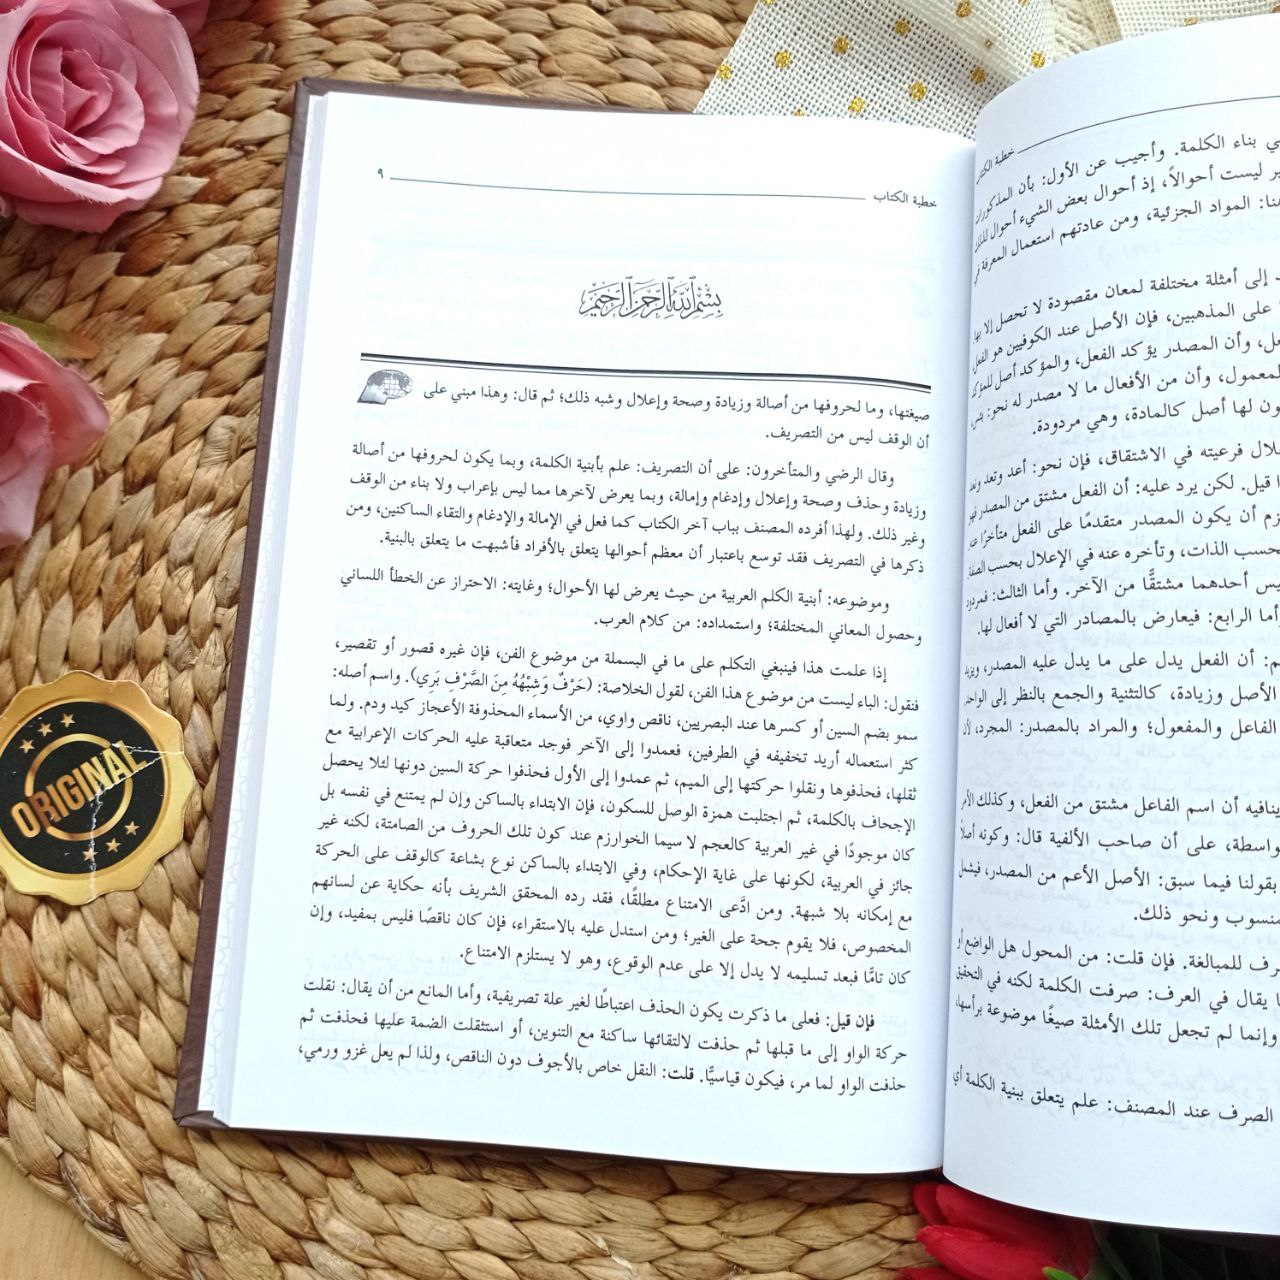 خطبة الكتاب ٩
بسم الله الرحمن الرحيم
صيغتها، وما لحروفها من أصالة وزيادة وصحة وإعلال وشبه ذلك؛ ثم قال: وهذا مبني على
أن الوقف ليس من التصريف.
وقال الرضي والمتأخرون: على أن التصريف: علم بأبنية الكلمة، وبما يكون لحروفها من أصالة
وزيادة وحذف وصحة وإعلال وإدغام وإمالة، وبما يعرض لآخرها مما ليس بإعراب ولا بناء من الوقف
وغير ذلك. ولهذا أفرده المصنف بباب آخر الكتاب كما فعل في الإمالة والإدغام والتقاء الساكنين، ومن
ذكرها في التصريف فقد توسع باعتبار أن معظم أحوالها يتعلق بالأفراد فأشبهت ما يتعلق بالبنية.
وموضوعه: أبنية الكلم العربية من حيث يعرض لها الأحوال؛ وغايته: الاحتراز عن الخطأ اللساني
وحصول المعاني المختلفة؛ واستمداده: من كلام العرب.
إذا علمت هذا فينبغي التكلم على ما في البسملة من موضوع الفن، فإن غيره قصور أو تقصير،
فنقول: الباء ليست من موضوع هذا الفن، لقول الخلاصة: (حَرْفٌ وَشِبْهُهُ مِنَ الصَّرْفِ بَرِي). واسم أصله:
سمو بضم السين أو كسرها عند البصريين، ناقص واوي، من الأسماء المحذوفة الأعجاز كيد ودم. ولما
كثر استعماله أريد تخفيفه في الطرفين، فعمدوا إلى الآخر فوجد متعاقبة عليه الحركات الإعرابية مع
ثقلها، فحذفوها ونقلوا حركتها إلى الميم، ثم عمدوا إلى الأول فحذفوا حركة السين دونها لئلا يحصل
الإجحاف بالكلمة، ثم اجتلبت همزة الوصل للسكون، فإن الابتداء بالساكن وإن لم يمتنع في نفسه بل
كان موجودًا في غير العربية كالعجم لا سيما الخوارزم عند كون تلك الحروف من الصامتة، لكنه غير
جائز في العربية، لكونها على غاية الإحكام، وفي الابتداء بالساكن نوع بشاعة كالوقف على الحركة
مع إمكانه بلا شبهة. ومن ادَّعى الامتناع مطلقًا، فقد رده المحقق الشريف بأنه حكاية عن لسانهم
المخصوص، فلا يقوم جحة على الغير؛ ومن استدل عليه بالاستقراء، فإن كان ناقصًا فليس بمفيد، وإن
كان تامًّا فبعد تسليمه لا يدل إلا على عدم الوقوع، وهو لا يستلزم الامتناع.
فإن قيل: فعلى ما ذكرت يكون الحذف اعتباطًا لغير علة تصريفية، وأما المانع من أن يقال: نقلت
حركة الواو إلى ما قبلها ثم حذفت لالتقائها ساكنة مع التنوين، أو استثقلت الضمة عليها فحذفت ثم
حذفت الواو لما مر، فيكون قياسيًّا. قلت: النقل خاص بالأجوف دون الناقص، ولذا لم يعل غزو ورمي،
خطبة الكتاب
ي بناء الكلمة. وأجيب عن الأول: بأن المذكورات
ير ليست أحوالاً، إذ أحوال بعض الشيء أحوال لذلك
هنا: المواد الجزئية، ومن عادتهم استعمال المعرفة في
د إلى أمثلة مختلفة لمعان مقصودة لا تحصل إلا بها
على المذهبين، فإن الأصل عند الكوفيين هو الفعل
عل، وأن المصدر يؤكد الفعل، والمؤكد أصل للمؤكد
لمعمول، وأن من الأفعال ما لا مصدر له نحو: بئس
ون لها أصل كالمادة، وهي مردودة.
علال فرعيته في الاشتقاق، فإن نحو: أعد وتعد ونعد
ا قيل. لكن يرد عليه: أن الفعل مشتق من المصدر
زم أن يكون المصدر متقدمًا على الفعل متأخرًا عنه
بحسب الذات، وتأخره عنه في الإعلال بحسب الصفة
يس أحدهما مشتقًّا من الآخر. وأما الثالث: فمردود
وأما الرابع: فيعارض بالمصادر التي لا أفعال لها.
م: أن الفعل يدل على ما يدل عليه المصدر، ويزيد
الأصل وزيادة، كالتثنية والجمع بالنظر إلى الواحد
الفاعل والمفعول؛ والمراد بالمصدر: المجرد، لأن
ينافيه أن اسم الفاعل مشتق من الفعل، وكذلك الأمر
واسطة، على أن صاحب الألفية قال: وكونه أصلاً
بقولنا فيما سبق: الأصل الأعم من المصدر، فيشمل
منسوب ونحو ذلك.
رف للمبالغة. فإن قلت: من المحول هل الواضع أو
ا يقال في العرف: صرفت الكلمة لكنه في التحقيق
وإنما لم تجعل تلك الأمثلة صيغًا موضوعة برأسها
الصرف عند المصنف: علم يتعلق ببنية الكلمة أي
ORIGINAL